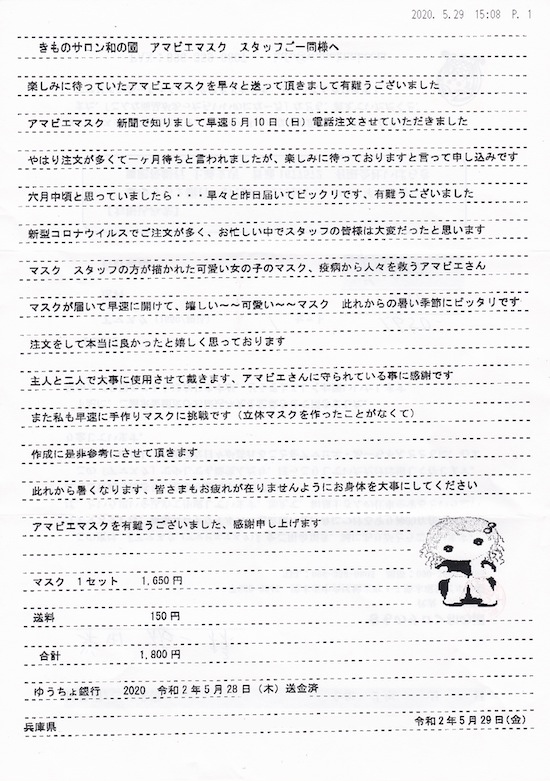 2020. 5.29 15:08 P. 1
きものサロン和の國 アマビエマスク スタッフご一同様へ
楽しみに待っていたアマビエマスクを早々と送って頂きまして有難うございました
アマビエマスク 新聞で知りまして早速5月10日（日）電話注文させていただきました
やはり注文が多くて一ヶ月待ちと言われましたが、楽しみに待っておりますと言って申し込みです
六月中頃と思っていましたら・・・早々と昨日届いてビックリです、有難うございました
新型コロナウイルスでご注文が多く、お忙しい中でスタッフの皆様は大変だったと思います
マスク スタッフの方が描かれた可愛い女の子のマスク、疫病から人々を救うアマビエさん
マスクが届いて早速に開けて、嬉しい～～可愛い～～マスク 此れからの暑い季節にピッタリです
注文をして本当に良かったと嬉しく思っております
主人と二人で大事に使用させて戴きます、アマビエさんに守られている事に感謝です
また私も早速に手作りマスクに挑戦です（立体マスクを作ったことがなくて）
作成に是非参考にさせて頂きます
此れから暑くなります、皆さまもお疲れが在りませんようにお身体を大事にしてください
アマビエマスクを有難うございました、感謝申し上げます
マスク 1セット 1,650円
送料 150円
合計 1,800円
ゆうちょ銀行 2020 令和2年5月28日（木）送金済
兵庫県 令和2年5月29日(金)